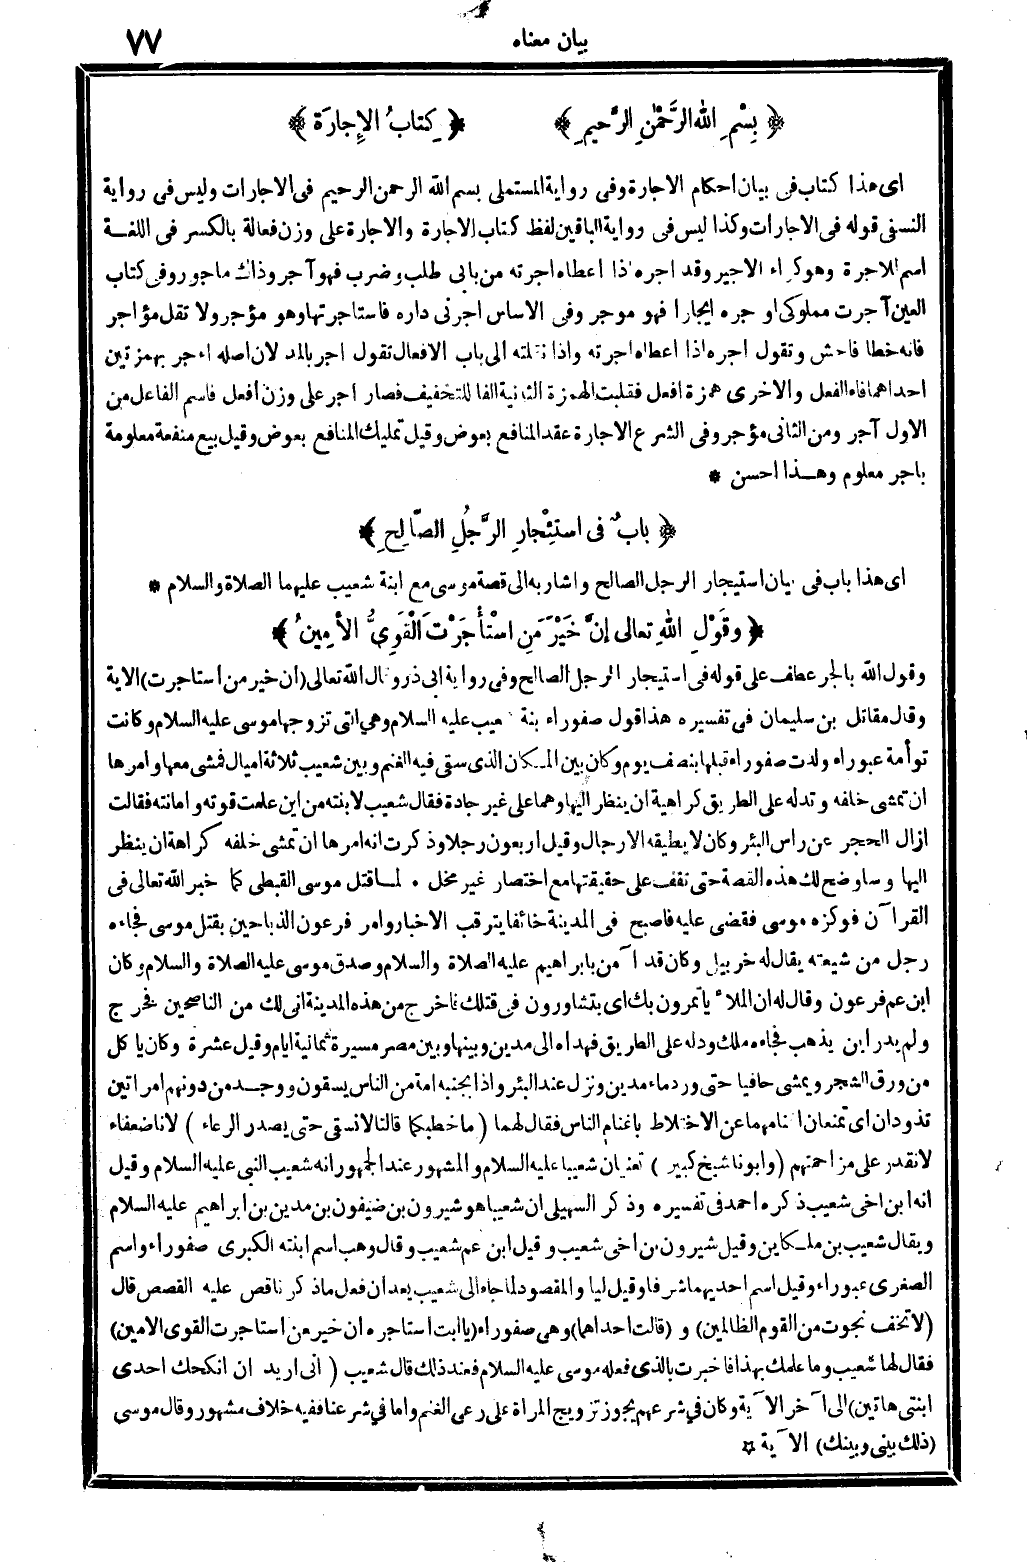 بيان معناه ٧٧
﴿ بِسْمِ اللهِ الرَّحْمٰنِ الرَّحِيمِ ﴾ ﴿ كِتَابُ الإِجارَة ﴾
اى هذا كتاب فى بيان احكام الاجارة وفى رواية المستملى بسم الله الرحمن الرحيم فى الاجارات وليس فى رواية
النسفى قوله فى الاجارات وكذا ليس فى رواية الباقين لفظ كتاب الاجارة والاجارة على وزن فعالة بالكسر فى اللغة
اسم للاجرة وهو كراء الاجير وقد اجره اذا اعطاه اجرته من بابى طلب وضرب فهو آجر وذاك ماجور وفى كتاب
العين آجرت مملوكى اوجره ايجارا فهو موجر وفى الاساس اجرنى داره فاستاجرتها وهو مؤجر ولا تقل مؤاجر
فانه خطا فاحش وتقول اجره اذا اعطاه اجرته واذا نقلته الى باب الافعال تقول اجر بالمد لان اصله اءجر بهمزتين
احداهما فاء الفعل والاخرى همزة افعل فقلبت الهمزة الثانية الفا للتخفيف فصار اجر على وزن أفعل فاسم الفاعل من
الاول آجر ومن الثانى مؤجر وفى الشرع الاجارة عقد المنافع بعوض وقيل تمليك المنافع بعوض وقيل بيع منفعة معلومة
باجر معلوم وهذا احسن *
﴿ بابٌ فى استِئْجارِ الرَّجُلِ الصَّالِحِ ﴾
اى هذا باب فى بيان استيجار الرجل الصالح واشار به الى قصة موسى مع ابنة شعيب عليهما الصلاة والسلام *
﴿ وقَوْلِ اللهِ تعالى إنَّ خَيْرَ مَنِ اسْتأْجَرْتَ الْقَوِىُّ الأمِينُ ﴾
وقول الله بالجر عطف على قوله فى استيجار الرجل الصالح وفى رواية ابى ذر وقال الله تعالى (ان خير من استاجرت) الاية
وقال مقاتل بن سليمان فى تفسيره هذا قول صفوراء بنة شعيب عليه السلام وهي التى تزوجها موسى عليه السلام وكانت
توأمة عبوراء ولدت صفوراء قبلها بنصف يوم وكان بين المكان الذى سقى فيه الغنم وبين شعيب ثلاثة اميال فمشى معها وامرها
ان تمشى خلفه وتدله على الطريق كراهية ان ينظر اليها وهما على غير جادة فقال شعيب لابنته من اين علمت قوته وامانته فقالت
ازال الحجر عن راس البئر وكان لا يطيقه الا رجال وقيل اربعون رجلا وذكرت انه امرها ان تمشى خلفه كراهة ان ينظر
اليها وساوضح لك هذه القصة حتى تقف على حقيقتها مع اختصار غير مخل . لما قتل موسى القبطى كما خبر الله تعالى فى
القرآن فوكزه موسى فقضى عليه فاصبح فى المدينة خائفا يترقب الاخبار وامر فرعون الذباحين بقتل موسى فجاءه
رجل من شيعته يقال له خربيل وكان قد آمن بابراهيم عليه الصلاة والسلام وصدق موسى عليه الصلاة والسلام وكان
ابن عم فرعون وقال له ان الملأ ياتمرون بك اى يتشاورون فى قتلك فاخرج من هذه المدينة انى لك من الناصحين فخرج
ولم يدر اين يذهب فجاءه ملك ودله على الطريق فهداه الى مدين وبينها وبين مصر مسيرة ثمانية ايام وقيل عشرة وكان ياكل
من ورق الشجر ويمشى حافيا حتى ورد ماء مدين ونزل عند البئر واذا بجنبه امة من الناس يسقون ووجد من دونهم امراتين
تذودان اى تمنعان اغنامهما عن الاختلاط باغنام الناس فقال لهما (ما خطبكما قالتا لا نسقى حتى يصدر الرعاء) لانا ضعفاء
لا نقدر على مزاحمتهم (وابونا شيخ كبير) تعنيان شعيبا عليه السلام والمشهور عند الجمهور انه شعيب النبى عليه السلام وقيل
انه ابن اخى شعيب ذكره احمد فى تفسيره وذكر السهيلى ان شعيبا هو شيرون بن ضيفون بن مدين بن ابراهيم عليه السلام
ويقال شعيب بن ملكاين وقيل شيرون بن اخى شعيب وقيل ابن عم شعيب وقال وهب اسم ابنته الكبرى صفوراء واسم
الصغرى عبوراء وقيل اسم احديهما شرفا وقيل ليا والمقصود لما جاء الى شعيب بعد ان فعل ماذكرنا قص عليه القصص قال
(لا تخف نجوت من القوم الظالمين) و (قالت احداهما) وهى صفوراء (يا ابت استاجره ان خير من استاجرت القوى الامين)
فقال لها شعيب وما علمك بهذا فاخبرت بالذى فعله موسى عليه السلام فعند ذلك قال شعيب (انى اريد ان انكحك احدى
ابنتى هاتين) الى آخر الآية وكان في شرعهم يجوز تزويج المراة على رعى الغنم واما في شرعنا ففيه خلاف مشهور وقال موسى
(ذلك بينى وبينك) الآية *